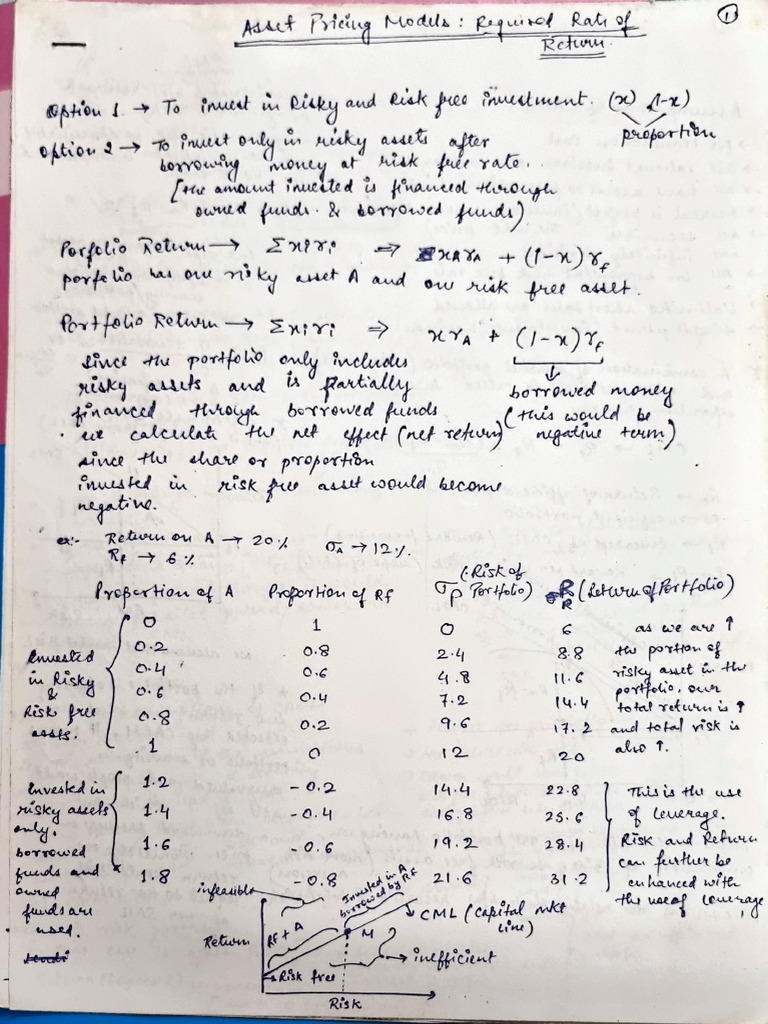 ①
Asset Pricing Models: Required Rate of
Return.
Option 1 → To invest in Risky and Risk free investment. (x) (1-x)
proportion
Option 2 → To invest only in risky assets after
borrowing money at risk free rate.
[the amount invested is financed through
owned funds. & borrowed funds)
Porfolio Return → Σxiri ⇒ xArA + (1-x)rf
porfolio has one risky asset A and one risk free asset.
Portfolio Return → Σxiri ⇒ xrA + (1-x)rf
since the portfolio only includes
risky assets and is partially
borrowed money
financed through borrowed funds
(this would be
we calculate the net effect (net return)
negative term)
since the share or proportion
invested in risk free asset would become
negative.
ex:- Return on A → 20% σA → 12%.
Rf → 6%
Proportion of A Proportion of Rf σp (Risk of Portfolio) R (Return of Portfolio)
0 1 0 6
0.2 0.8 2.4 8.8
0.4 0.6 4.8 11.6
0.6 0.4 7.2 14.4
0.8 0.2 9.6 17.2
1 0 12 20
Invested
in Risky
&
Risk free
assts.
as we are ↑
the portion of
risky asset in the
portfolio, our
total return is ↑
and total risk is
also ↑.
1.2 -0.2 14.4 22.8
1.4 -0.4 16.8 25.6
1.6 -0.6 19.2 28.4
1.8 -0.8 21.6 31.2
Invested in
risky assets
only.
borrowed
funds and
owned
funds are
used.
This is the use
of leverage.
Risk and Return
can further be
enhanced with
the use of leverage
infeasible
Invested in A
borrowed by RF
CML (capital mkt
line)
Return
RF + A
M
inefficient
Risk free
Risk